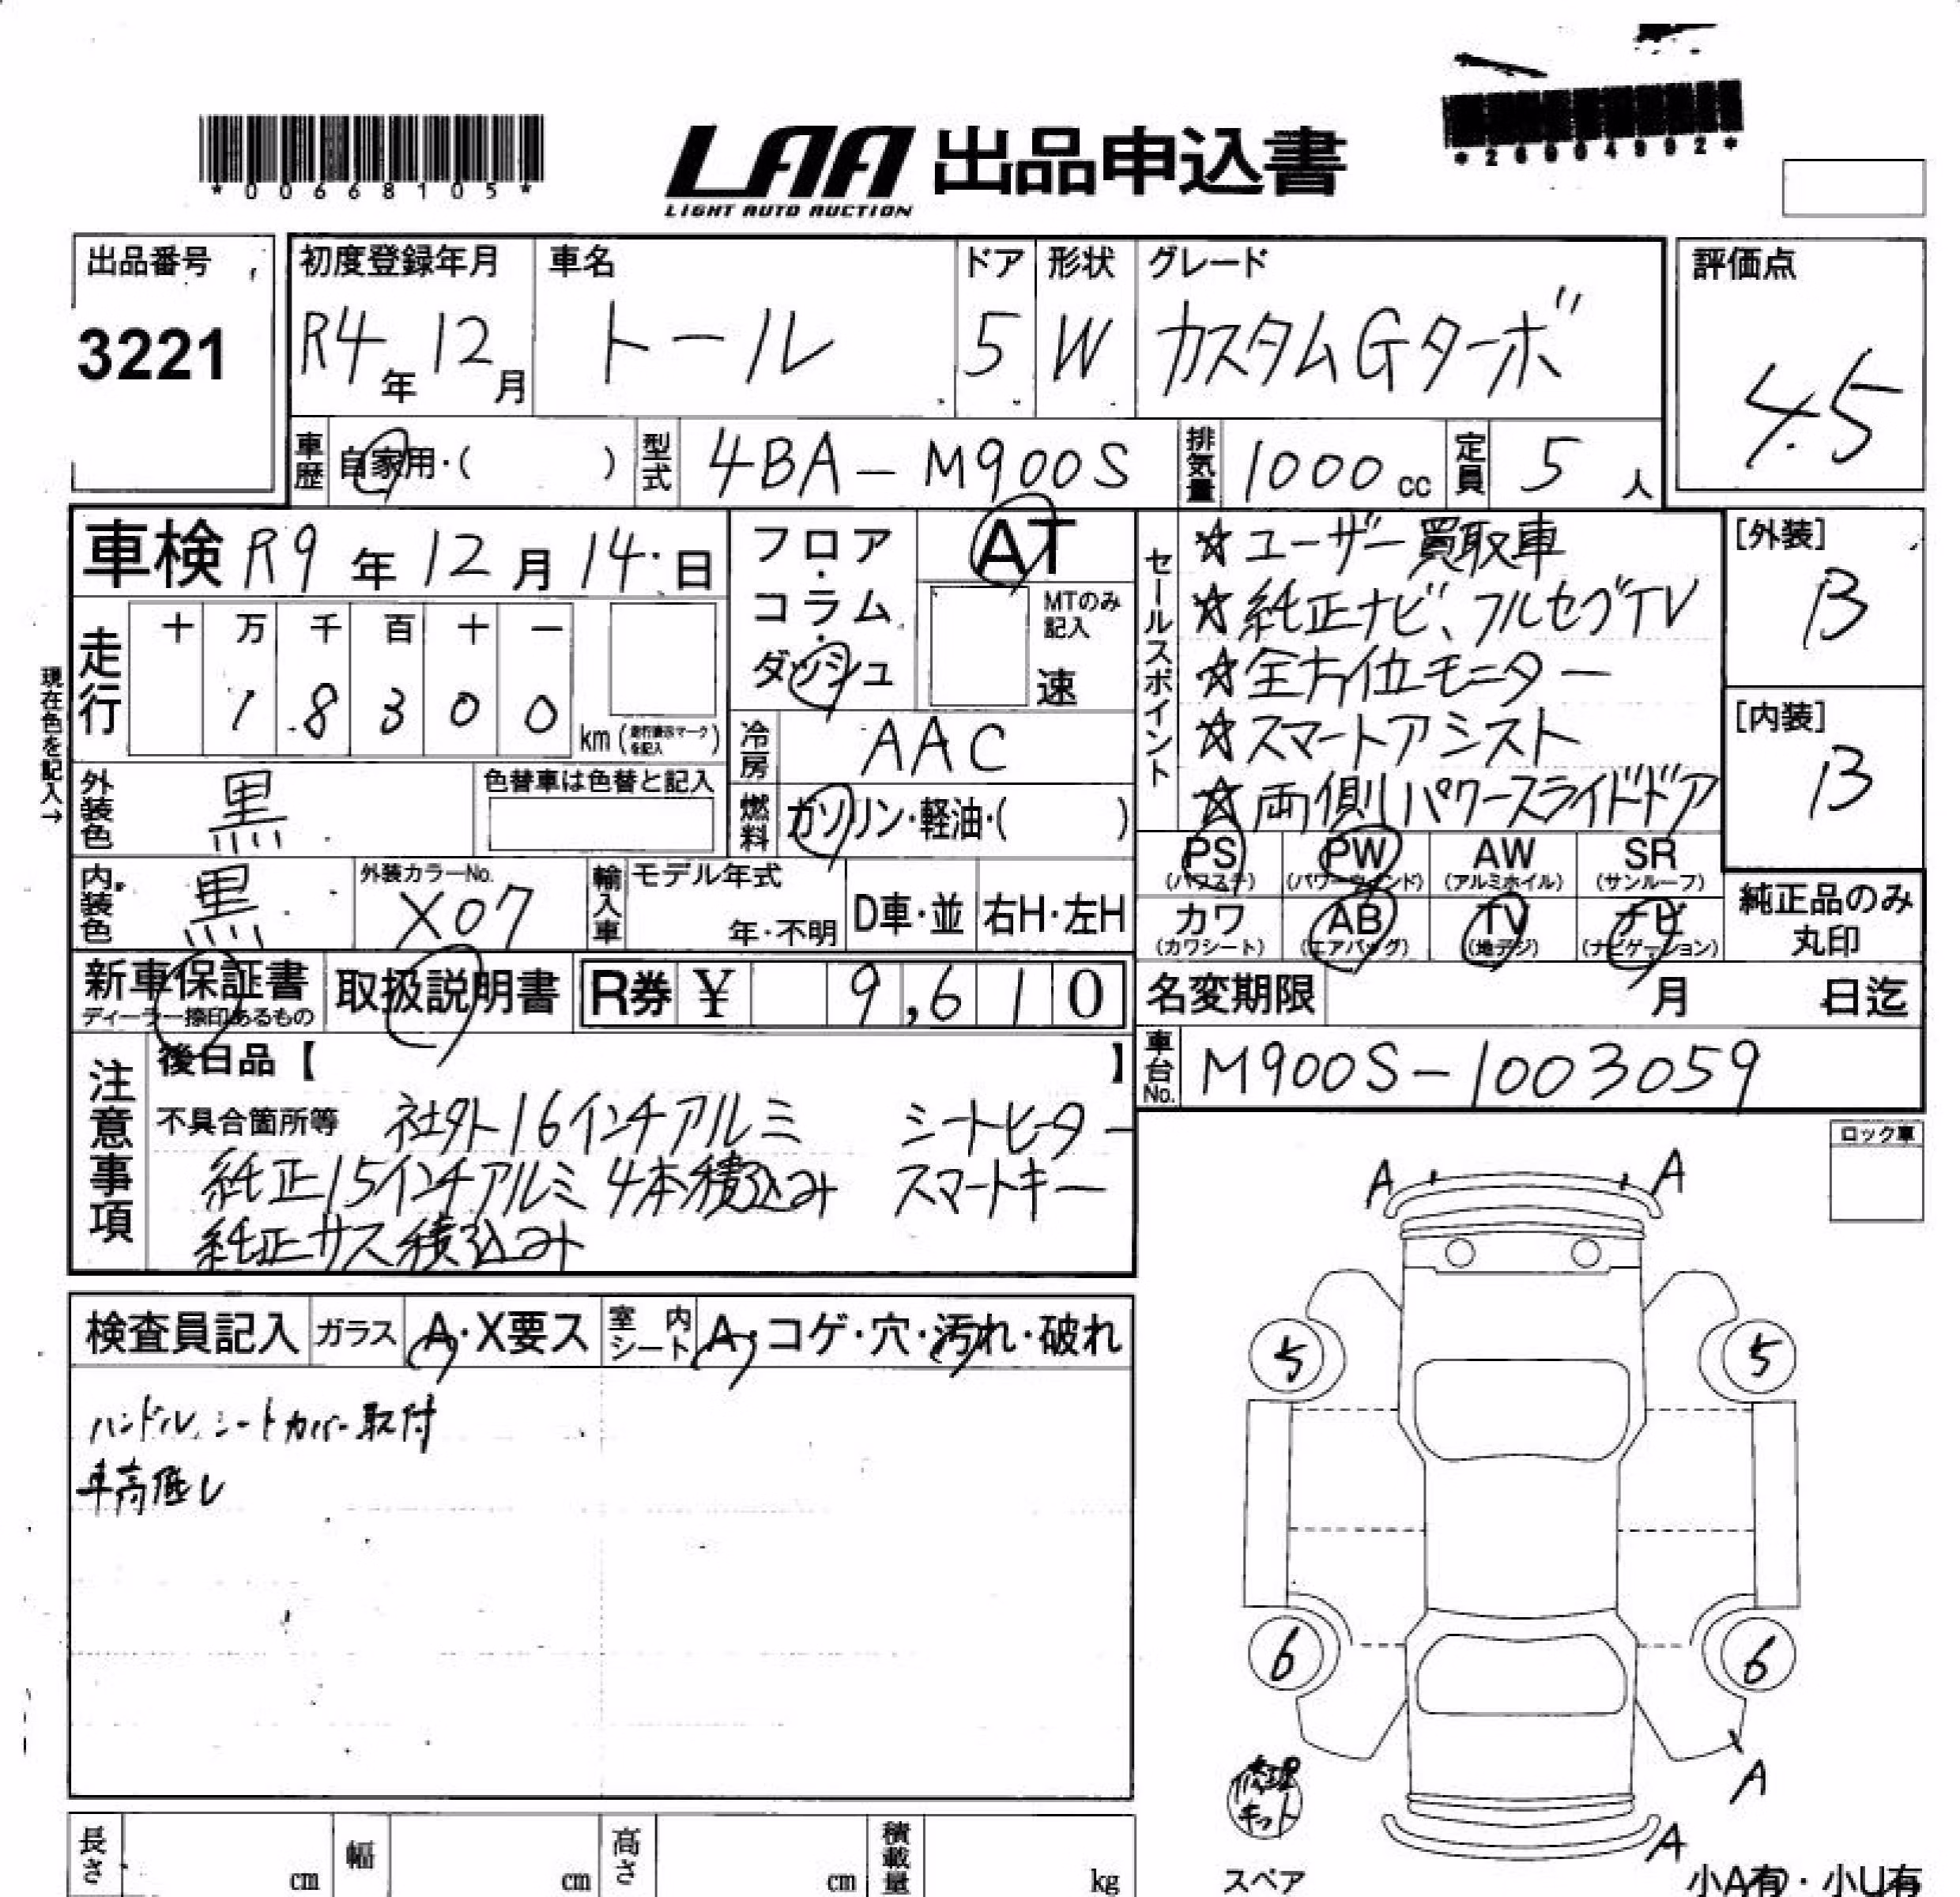 *00668105*
LAA 出品申込書
LIGHT AUTO AUCTION
*26904992*
出品番号
3221
初度登録年月
R4年12月
車名
トール
ドア
5
形状
W
グレード
カスタムGターボ
評価点
4.5
車歴 自家用・( )
型式 4BA-M900S
排気量 1000cc
定員 5人
車検 R9年12月14日
フロア・コラム・ダッシュ
AT
MTのみ記入
速
現在色を記入→
走行
十 万 千 百 十 一
1 8 3 0 0 km
冷房 AAC
燃料 ガソリン・軽油・( )
外装色 黒
色替車は色替と記入
内装色 黒
外装カラーNo.
X07
輸入車 モデル年式
年・不明
D車・並 右H・左H
セールスポイント
☆ユーザー買取車
☆純正ナビ、フルセグTV
☆全方位モニター
☆スマートアシスト
☆両側パワースライドドア
[外装]
B
[内装]
B
PS (パワステ)
PW (パワーウインド)
AW (アルミホイル)
SR (サンルーフ)
カワ (カワシート)
AB (エアバッグ)
TV (地デジ)
ナビ (ナビゲーション)
純正品のみ丸印
新車保証書
ディーラー捺印あるもの
取扱説明書
R券 ¥ 9,610
名変期限 月 日迄
車台No. M900S-1003059
注意事項
後日品【 】
不具合箇所等 社外16インチアルミ シートヒーター
純正15インチアルミ 4本積込み スマートキー
純正サス積込み
ロック車
検査員記入 ガラス A・X要ス 室内シート A・コゲ・穴・汚れ・破れ
ハンドル、シートカバー取付
車高低し
A A
5 5
6 6
A
A
修理キット
スペア
小A有・小U有
長さ cm 幅 cm 高さ cm 積載量 kg